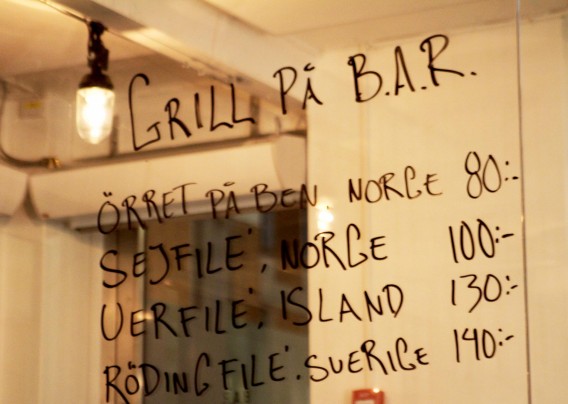 GRILL PÅ B.A.R.
ÖRRET PÅ BEN, NORGE 80:-
SEJFILE', NORGE 100:-
UERFILE', ISLAND 130:-
RÖDINGFILE'. SVERIGE 140:-